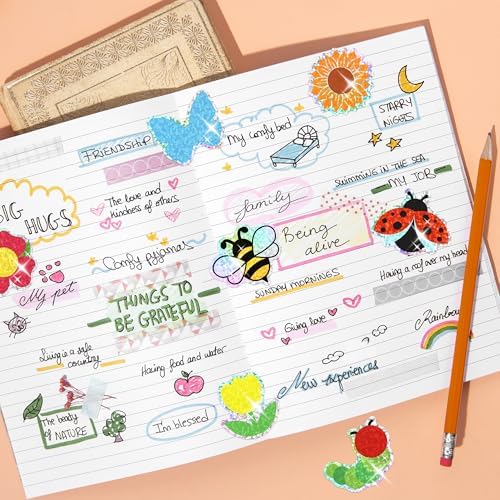 FRIENDSHIP
BIG
HUGS
The love and
kindness of others
Comfy pyjamas
My pet
THINGS TO
BE GRATEFUL
Living is a safe
country
Having food and water
The beauty
of NATURE
I'm blessed
My comfy bed
STARRY
NIGHTS
SWIMMING IN THE SEA
MY JOB
family
Being
alive
SUNDAY MORNINGS
Having a roof over my head
Giving love
Rainbows
New experiences